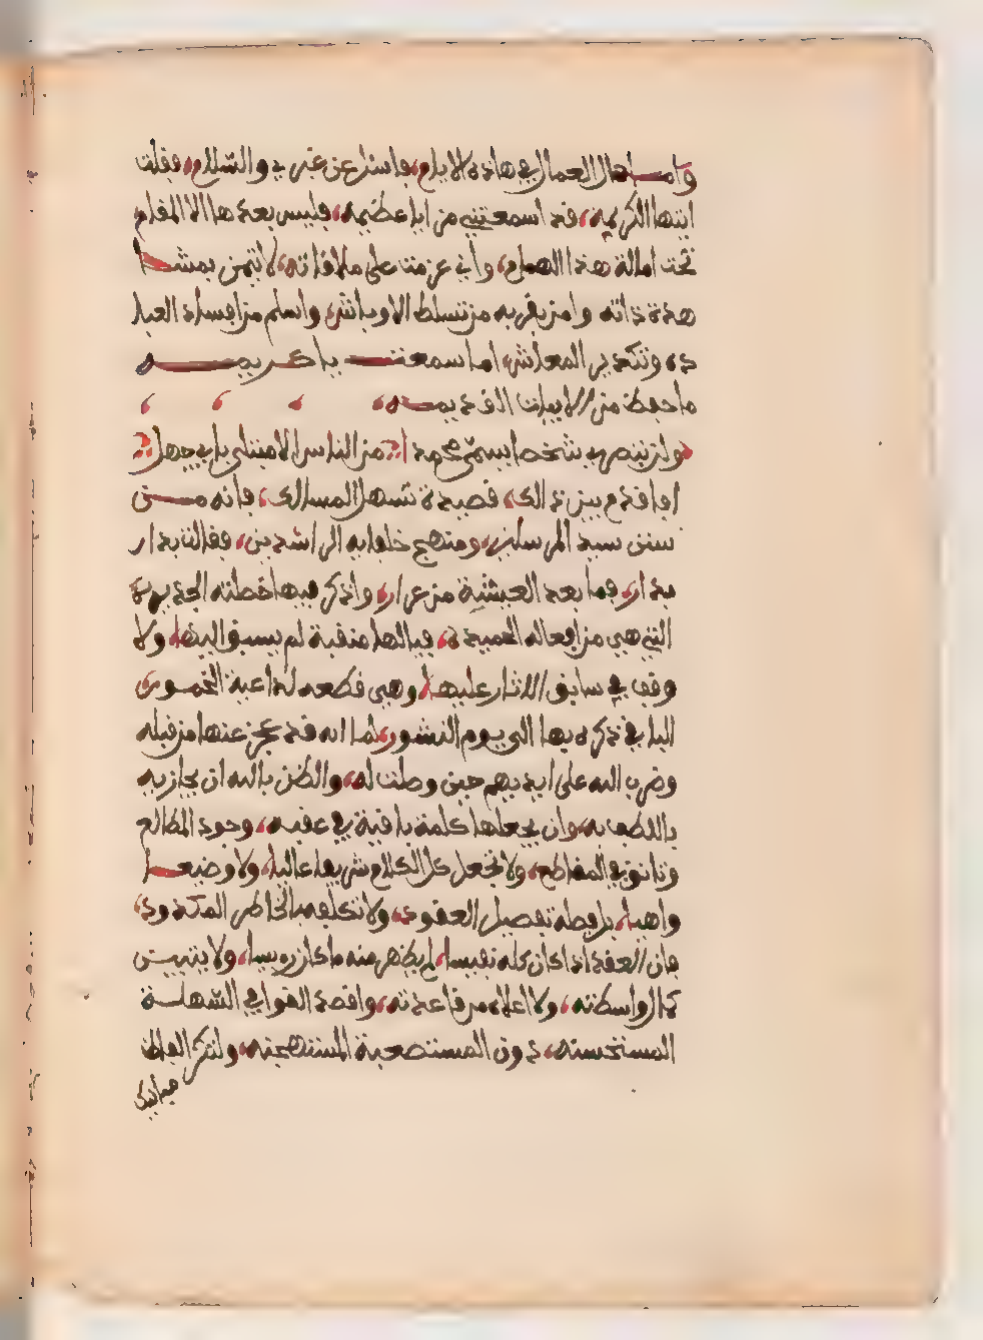 واما هاذا العمال في هاذه الايام، فاسئل عن غيري والسلام، فقلت
ايتها الكريمة، قد اسمعتني مزايا عظيمة، فليس بعد هاالا المقام
تحت امالة هذا الهمام، واني عزمت على ملاقاته، لاتيمن بمشا
هدة ذاته وامن بقربه من تسلط الاوباش، واسلم من افساد العبا
ده وتكدير المعاش، اما سمعت يا كريمه
ما حفظ من الابيات القديمه،
ولن ينصر شخصا يسمى محمدا من الناس الا مبتلى بابي جهل
افا قدم بين ذالك، قصيدة تسهل المسالك، فانه من
سنن سيد المرسلين، ومنهج خلفايه الراشدين، فقالت بدار
بدار، فما بعد العشية من عرار، واذكر فيها خطته الجديرة
التي هي من افعاله الحميدة، فيالها منقبة لم يسبق اليها، ولا
وقف في سابق الاثار عليها، وهي قطعه لداعية الخمور،
الباقي ذكره بها الى يوم النشور، لما انه قد عجز عنها من قبله
وضرب الله على ايديهم حين وصلت له، والظن بالله ان يجازيه
باللطف به، وان يجعلها كلمة باقية في عقبه، وجود المطالع
وتانق في المقاطع، ولا تجعل كل الكلام شريفا عاليا، ولا وضيعا
واهيا، بل فصله تفصيل العقود، ولا تكلفه بالخاطر المكدود،
فان العقد اذا كان كله نفيسا، لم يظهر منه ما كان رييسا، ولا يتبين
كمال واسطته، ولا اعلاه من قاعدته، واقصد القوافي السهلة
المستحسنة، دون المستصعبة المستهجنة، ولتكن القاطن